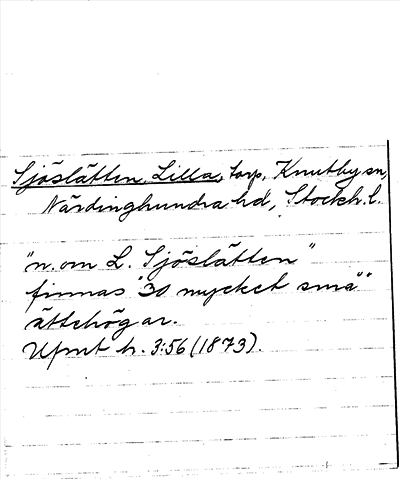 Sjöslätten, Lilla, torp, Knutby sn,
Närdinghundra hd, Stockh. l.
"n. om L. Sjöslätten"
finnas "30 mycket små"
ättehögar.
Upmt h. 3:56 (1873).